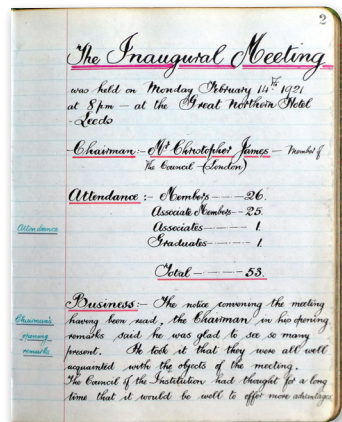 2
The Inaugural Meeting
was held on Monday February 14th 1921
at 8 pm — at the Great Northern Hotel
- Leeds
Chairman :- Mr Christopher James - Member of
The Council (London)
Attendance :- Members ---- 26.
Associate Members -- 25.
Attendance
Associates ---- 1.
Graduates ---- 1.
Total ---- 53.
Business :- The notice convening the meeting
Chairman's
having been read, the Chairman in his opening
opening
remarks said he was glad to see so many
remarks
present. He took it that they were all well
acquainted with the objects of the meeting.
The Council of the Institution had thought for a long
time that it would be well to offer more advantages